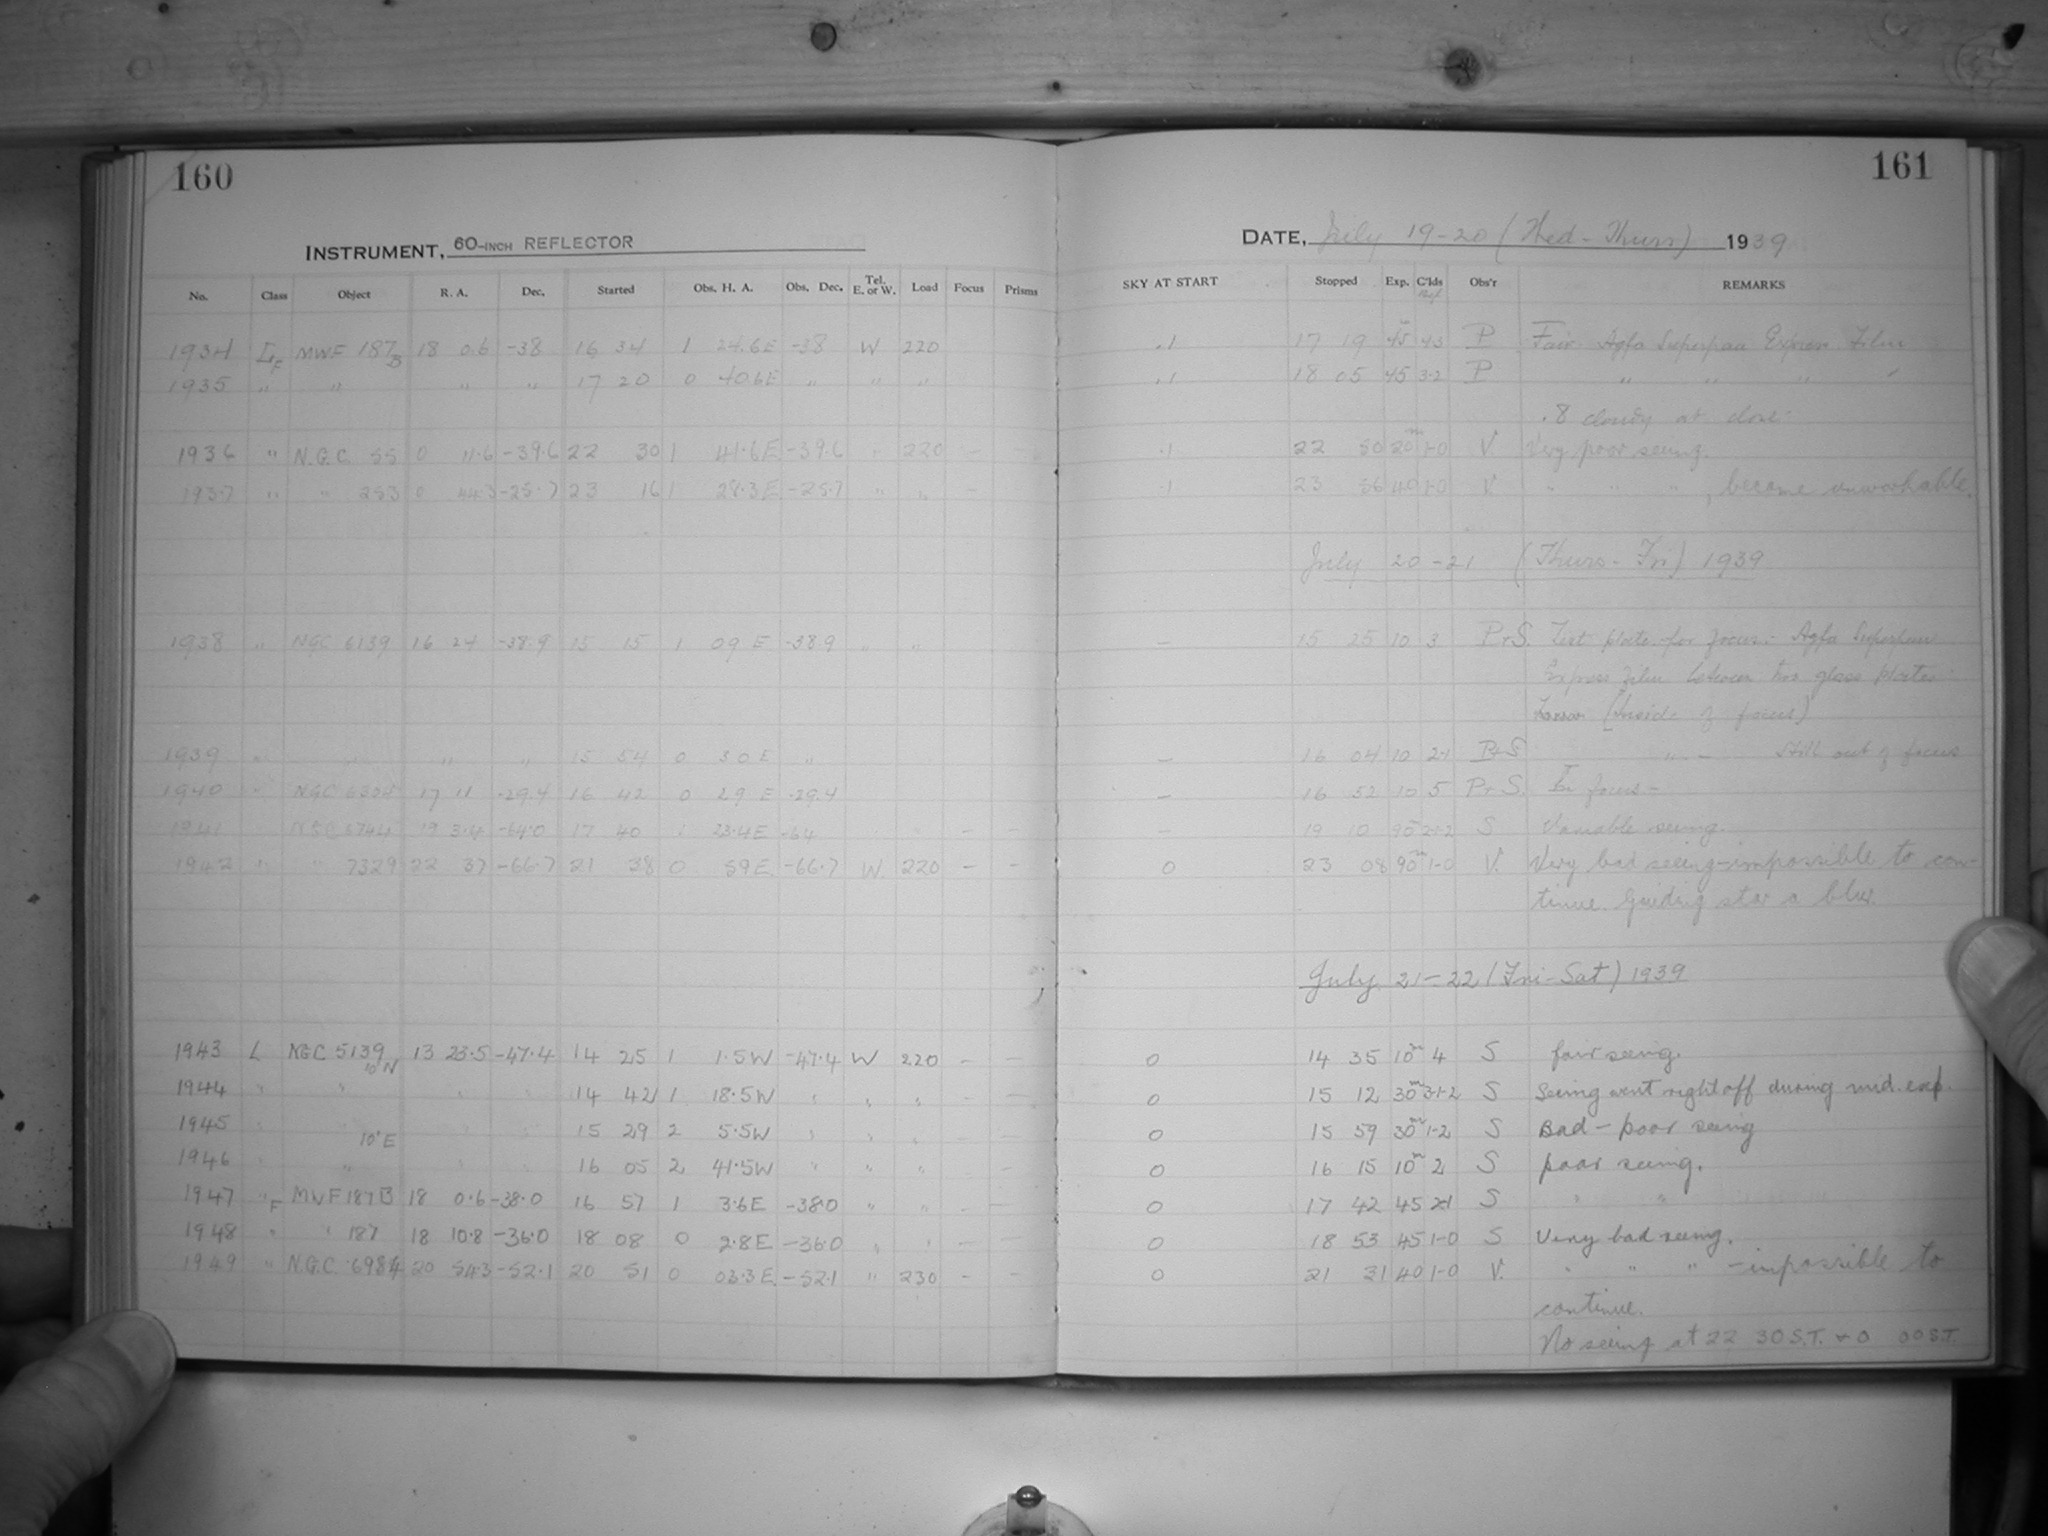 160
161
INSTRUMENT, 60-INCH REFLECTOR
DATE, July 19-20 (Wed-Thurs) 1939
No. Class Object R. A. Dec. Started Obs. H. A. Obs. Dec. Tel. E. or W. Load Focus Prisms SKY AT START Stopped Exp. C'lds Obs'r REMARKS
1934 MWF 187B 18 0.6 -38 16 34 1 24.6E -38 W 220 .1 17 19 45 P Fair. Agfa Superpan Express Film
1935 " " " " 17 20 0 40.6E " " " .1 18 05 45 3-2 P " " " "
.8 cloudy at close
1936 " N.G.C. 55 0 11.6 -39.6 22 30 1 41.6E -39.6 " 220 - - .1 22 50 20m 1-0 V. Very poor seeing.
1937 " " 253 0 44.3 -25.7 23 16 1 28.3E -25.7 " " - .1 23 56 40 1-0 V. " " ", became unworkable.
July 20-21 (Thurs-Fri) 1939
1938 " NGC 6139 16 24 -38.9 15 15 1 09 E -38.9 " " - 15 25 10 3 P+S. Test plate for focus.- Agfa Superpan
Express Film between two glass plates
(Inside of focus)
1939 " " " " 15 54 0 30E " - 16 04 10 2-1 P+S " - Still out of focus
1940 " NGC 6304 17 11 -29.4 16 42 0 29 E -29.4 - 16 52 10 5 P+S. In focus -
1941 NGC 6744 19 3.4 -64.0 17 40 1 23.4E -64 - - - 19 10 90 2-1-2 S Variable seeing.
1942 " " 7329 22 37 -66.7 21 38 0 59E -66.7 W. 220 - - 0 23 08 90m 1-0 V. Very bad seeing-impossible to con-
tinue. Guiding star a blur.
July 21-22 (Fri-Sat) 1939
1943 L NGC 5139 10'N 13 23.5 -47.4 14 25 1 1.5W -47.4 W 220 - - 0 14 35 10m 4 S fair seeing.
1944 " " " " 14 42 1 18.5W " " " - - 0 15 12 30m 3-1-2 S Seeing went right off during mid. exp.
1945 " " " " 15 29 2 5.5W " " " - - 0 15 59 30m 1-2 S Bad - poor seeing
1946 " 10'E " " " 16 05 2 41.5W " " " - 0 16 15 10m 2 S poor seeing.
1947 "F MWF 187B 18 0.6 -38.0 16 57 1 3.6E -38.0 " " - - 0 17 42 45 2-1 S " "
1948 " " 187 18 10.8 -36.0 18 08 0 2.8E -36.0 " " - - 0 18 53 45 1-0 S Very bad seeing.
1949 " N.G.C. 6984 20 54.3 -52.1 20 51 0 03.3E -52.1 " 230 - - 0 21 31 40 1-0 V. " " " -impossible to
continue.
No seeing at 22 30 S.T. + 0 00 S.T.